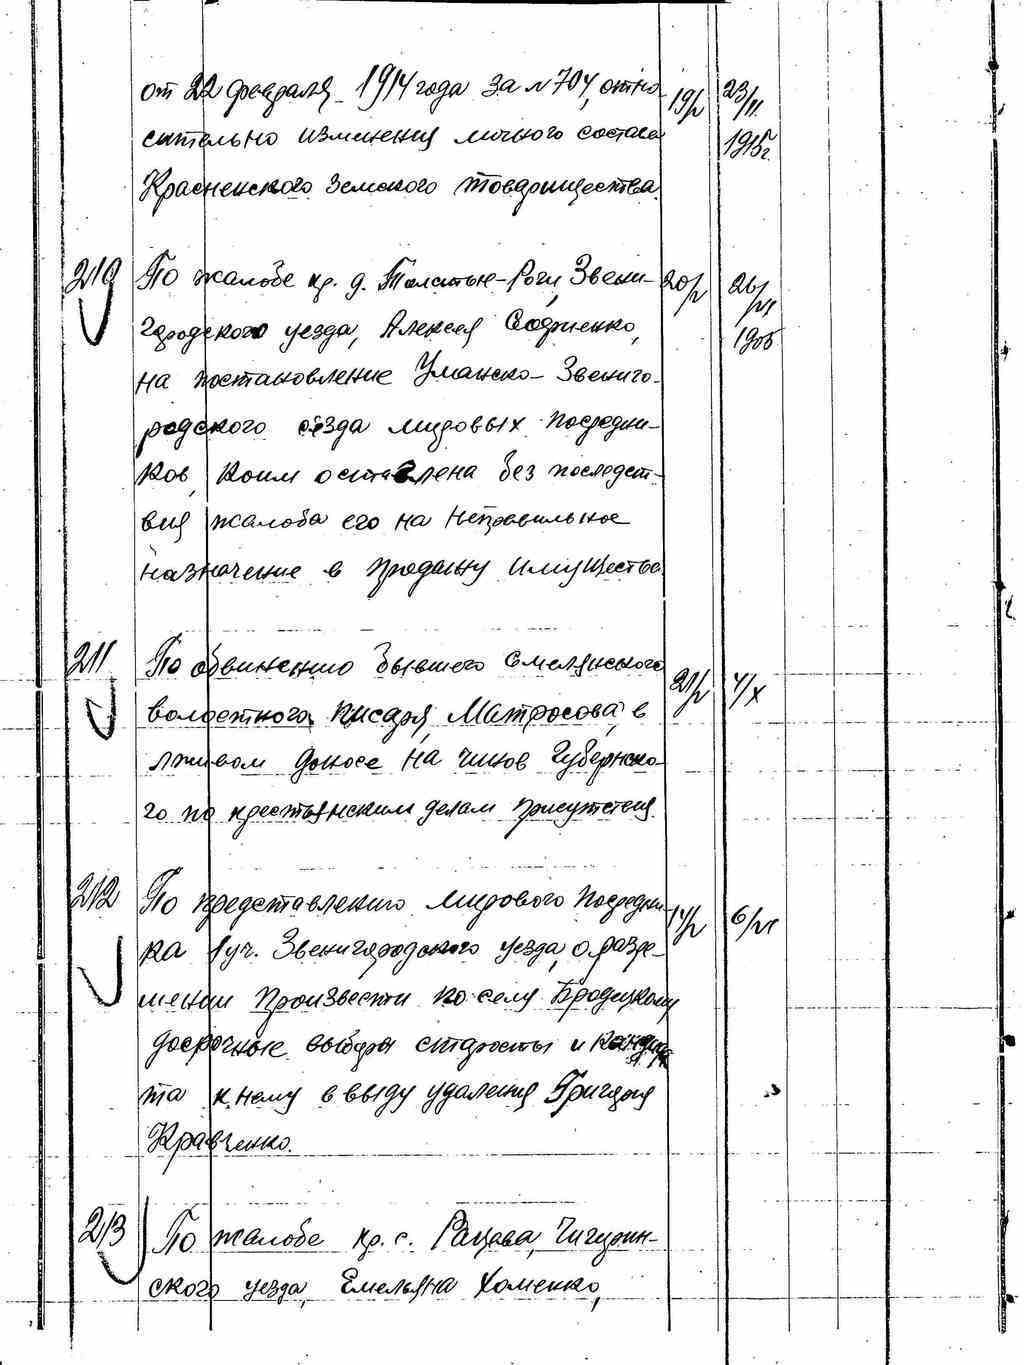 от 22 февраля 1914 года за № 704, отно- 19/V 23/II
сительно изменения личного состава 1915г.
Красненского земского товарищества.
210 По жалобе кр. д. Толстые-Роги, Звени- 20/V 26/VI
городского уезда, Алексея, 1905
на постановление Уманско-Звениго-
родского съезда мировых посредни-
ков, коим оставлена без последст-
вия жалоба его на неправильное
назначение в продажу имущества.
211 По обвинению бывшего Смелянского
волостного писаря, Матросова, в 21/V 4/X
лживом доносе на чинов Губернско-
го по крестьянским делам присутствия.
212 По представлению мирового посредни- 14/V 6/VI
ка 1 уч. Звенигородского уезда, о разре-
шении произвести по селу Бродецкому
досрочные выборы старосты и кандида
та к нему в виду удаления Григория
Кравченко.
213 По жалобе кр. с. Рацева, Чигирин-
ского уезда, Емельяна Хоменко,